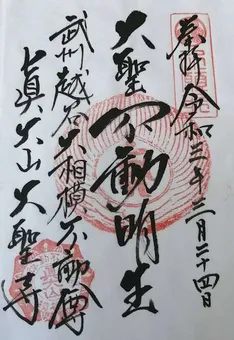 奉拝 令和三年三月二十四日
大聖不動明王
武州越谷大相模不動尊
眞大山大聖寺